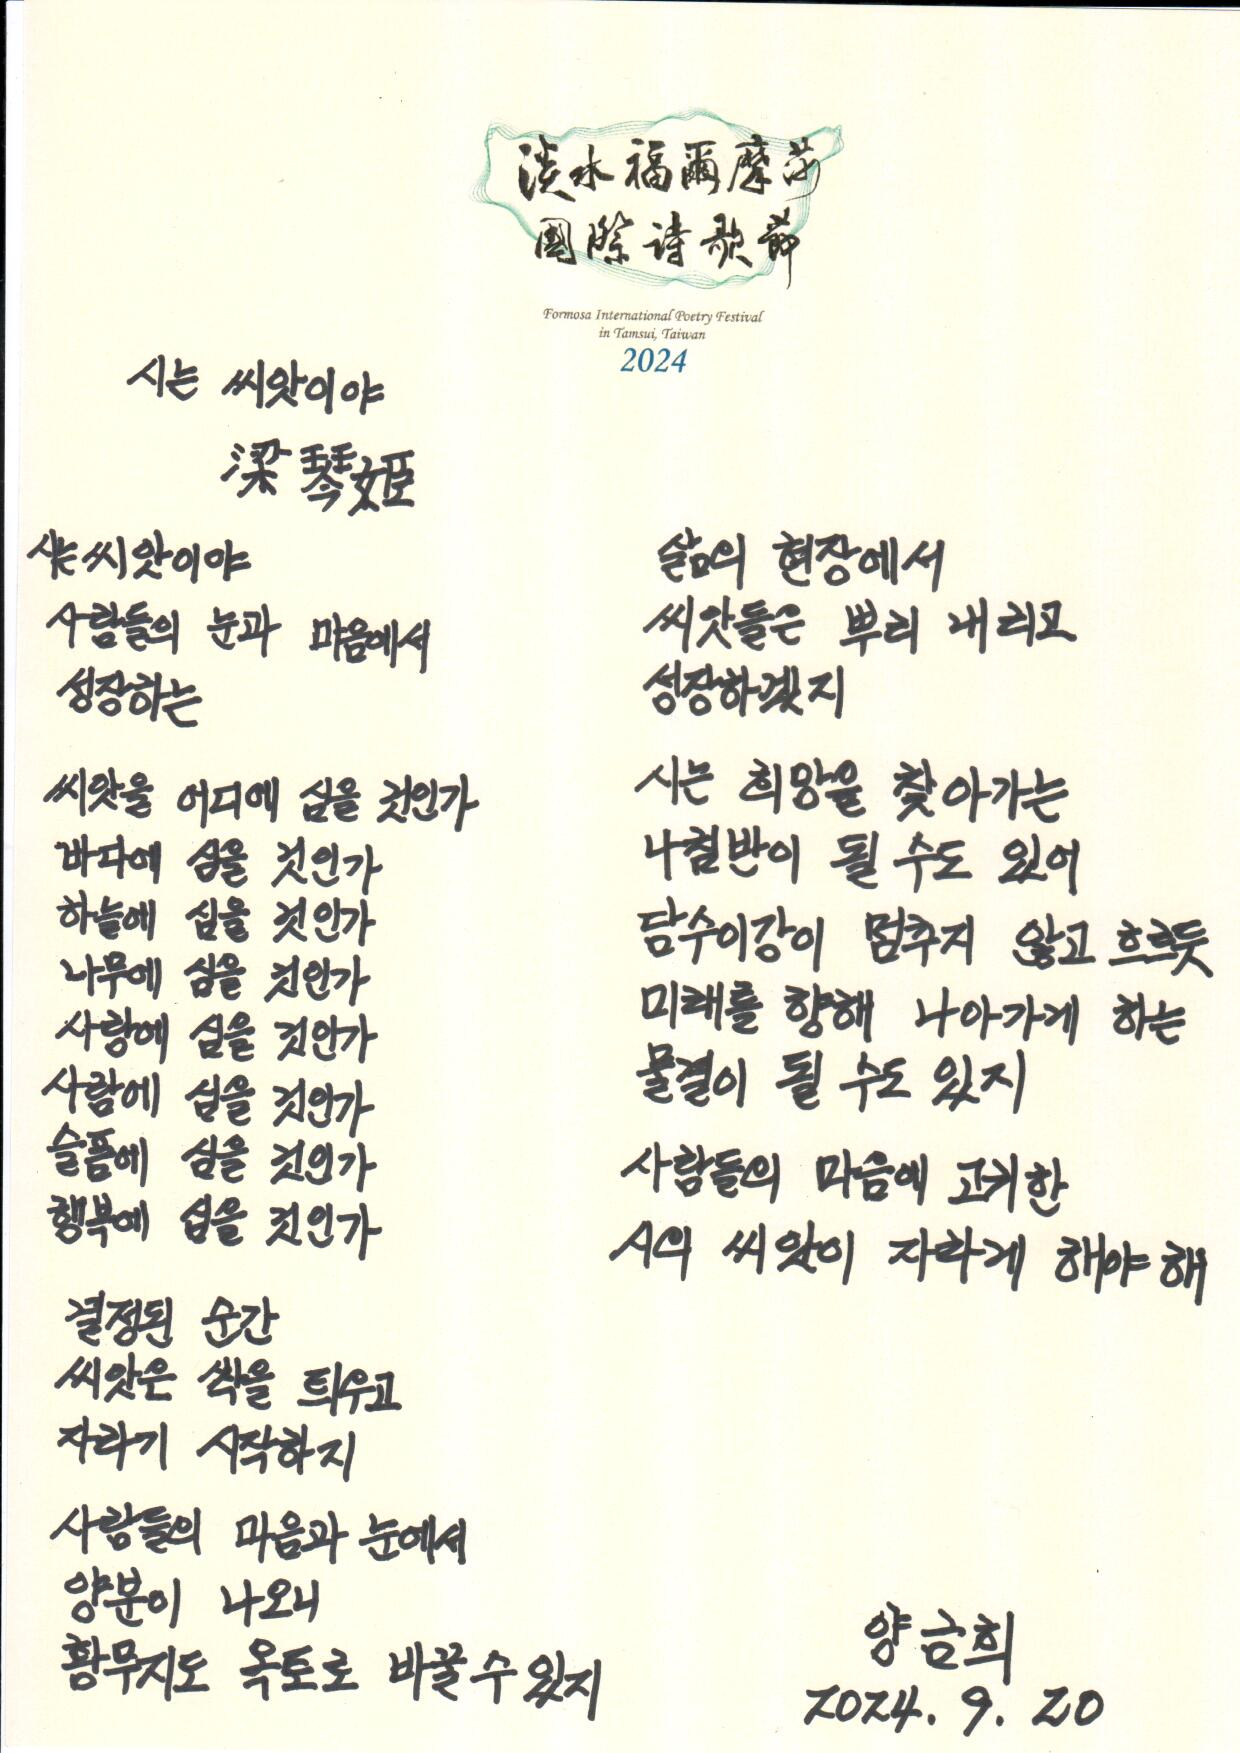 淡水福爾摩莎
國際詩歌節
Formosa International Poetry Festival
in Tamsui, Taiwan
2024
시는 씨앗이야
梁琴姬
시는 씨앗이야
사람들의 눈과 마음에서
성장하는
씨앗을 어디에 심을 것인가
바다에 심을 것인가
하늘에 심을 것인가
나무에 심을 것인가
사랑에 심을 것인가
사람에 심을 것인가
슬픔에 심을 것인가
행복에 심을 것인가
결정된 순간
씨앗은 싹을 틔우고
자라기 시작하지
사람들의 마음과 눈에서
양분이 나오니
황무지도 옥토로 바꿀 수 있지
삶의 현장에서
씨앗들은 뿌리 내리고
성장하겠지
시는 희망을 찾아가는
나침반이 될 수도 있어
담수이강이 멈추지 않고 흐르듯
미래를 향해 나아가게 하는
물결이 될 수도 있지
사람들의 마음에 고귀한
시의 씨앗이 자라게 해야 해
양금희
2024. 9. 20